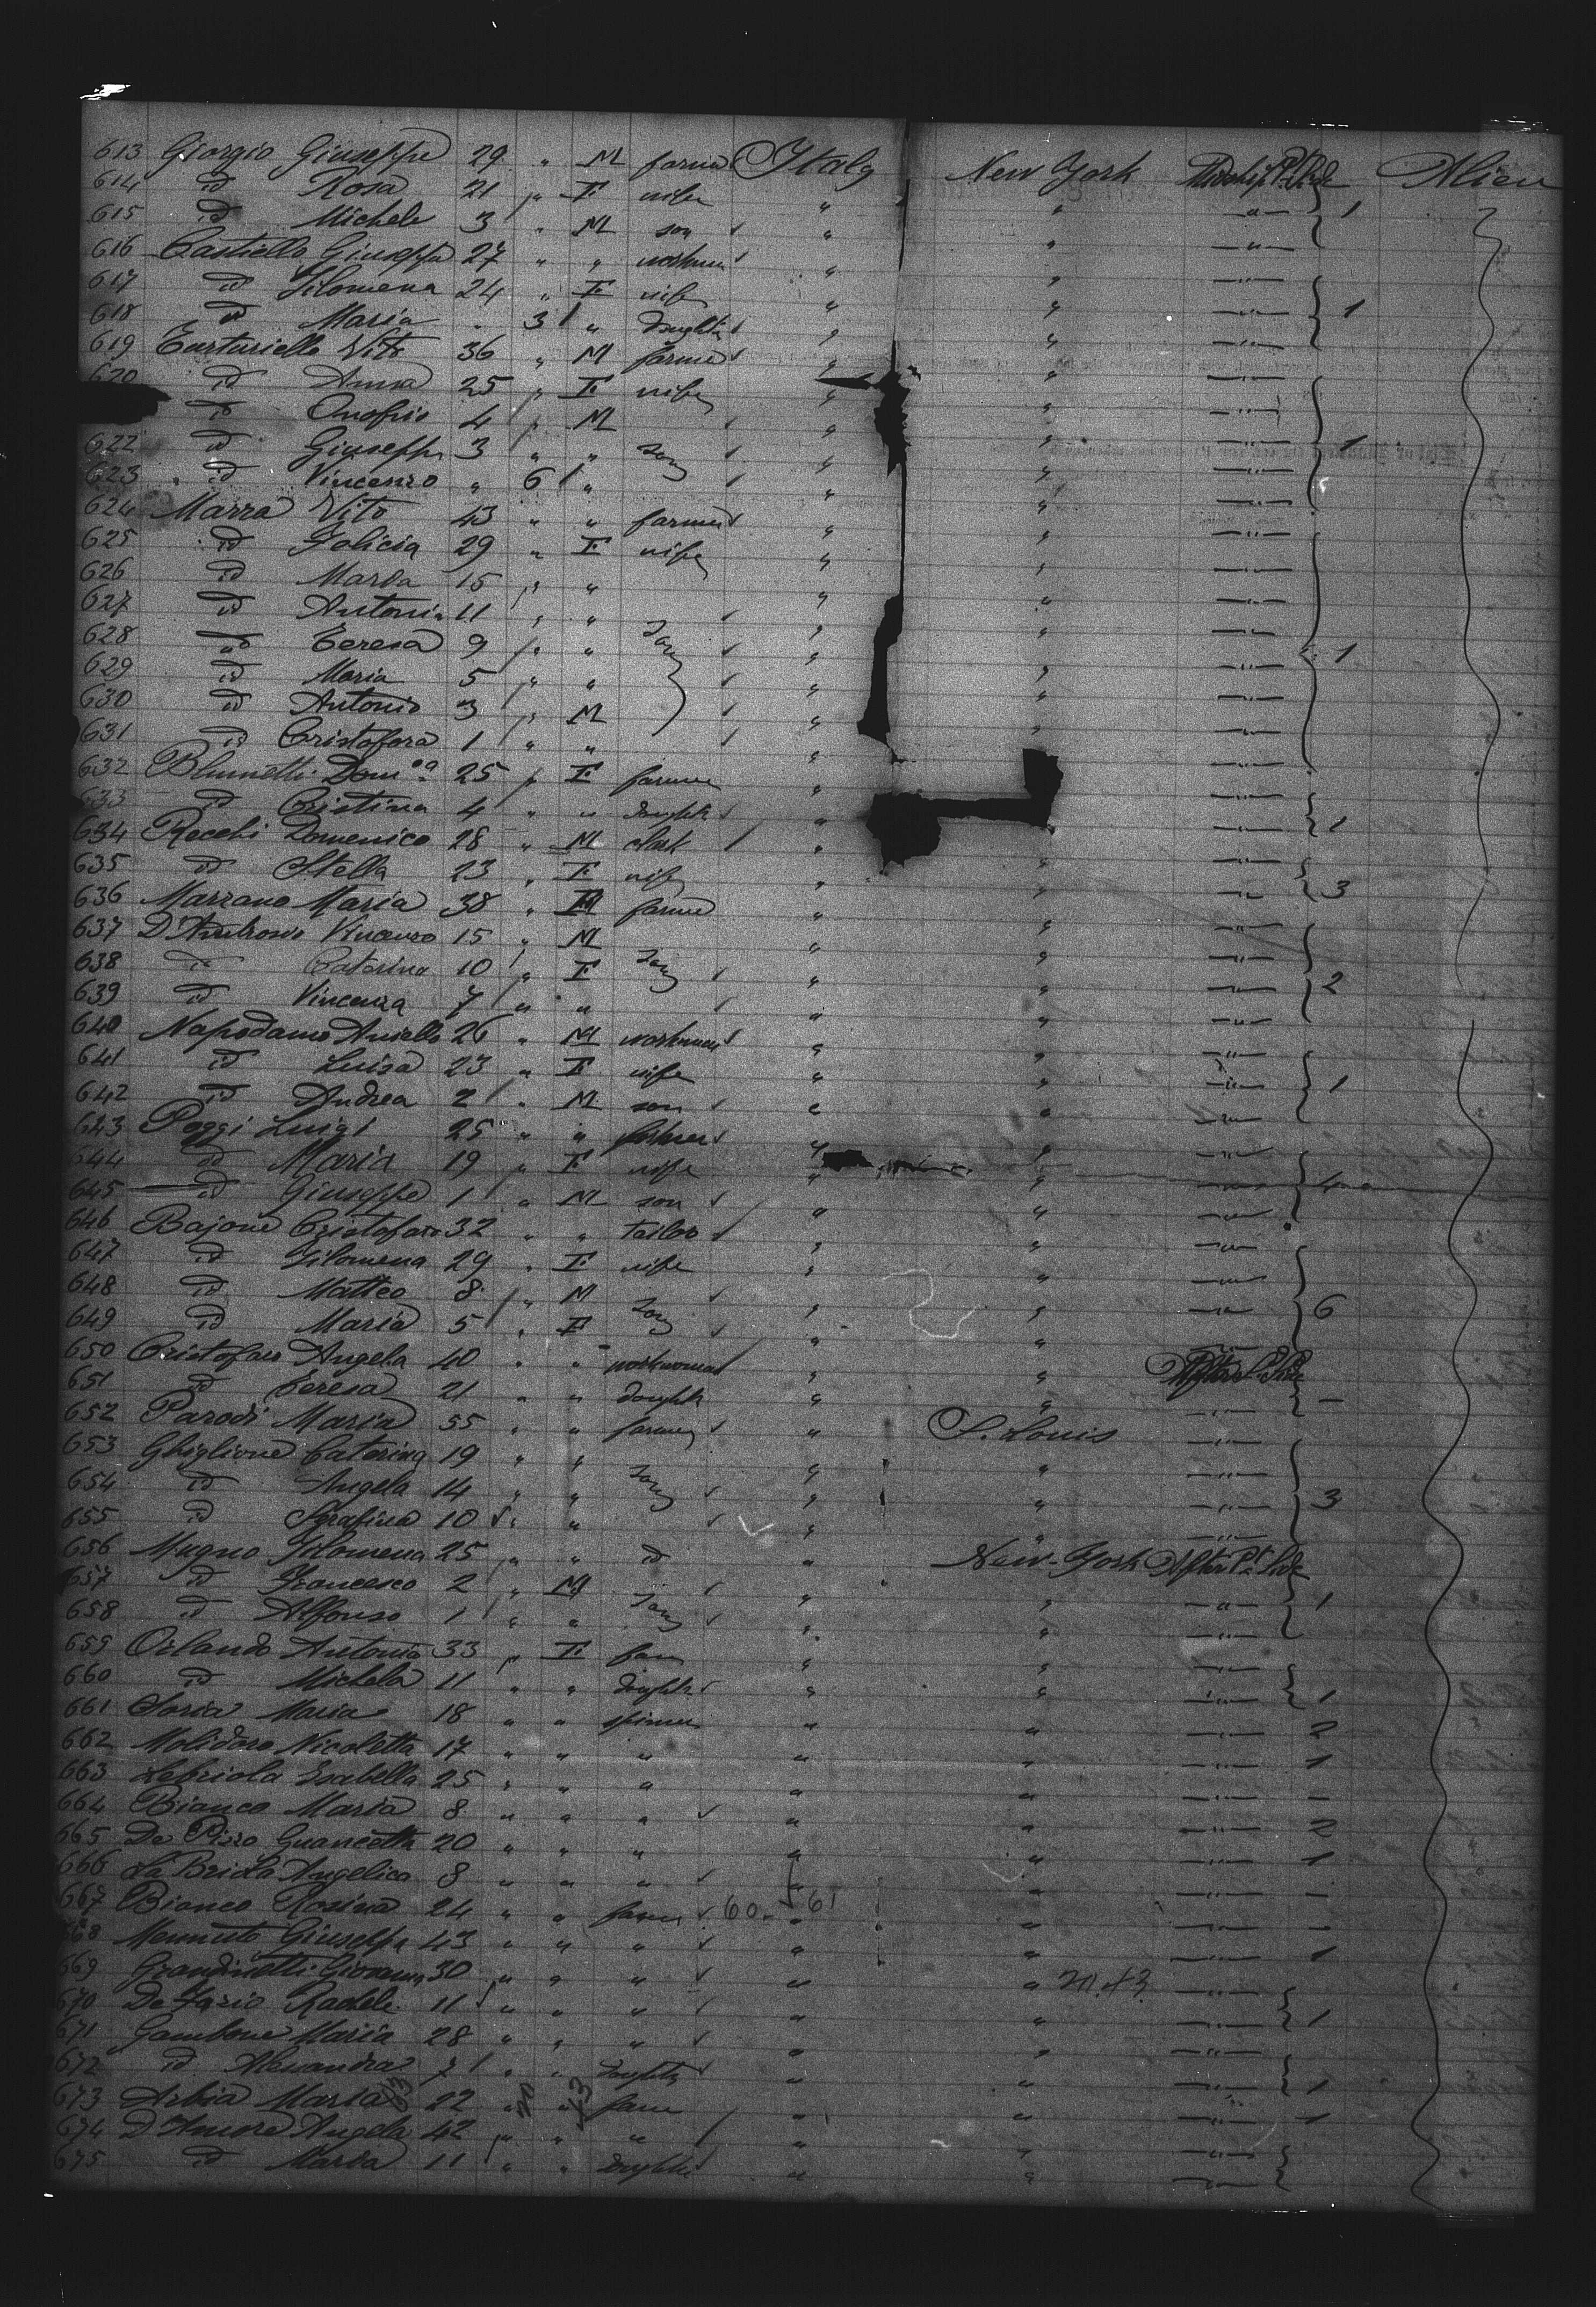 613 Giorgio Giuseppe 29 " M farmer Italy New York Alien
614 id Rosa 21 " F wife " " " 1
615 id Michele 3 " M son " " "
616 Castiello Giuseppe 27 " " workman " "
617 id Filomena 24 " F wife " " " 1
618 id Maria " 3 " daughter " " "
619 Vito 36 " M farmer " " "
620 id Anna 25 " F wife " " "
id Onofrio 4 " M " " "
622 id Giuseppe 3 " " " " " 1
623 id Vincenzo " 6 " " " "
624 Marra Vito 43 " " farmer " " "
625 id Felicia 29 " F wife " " "
626 id Maria 15 " " " " "
627 id Antonia 11 " " " " "
628 id Teresa 9 " " " " " 1
629 id Maria 5 " " " " "
630 id Antonio 3 " M " " "
631 id Cristofora 1 " " " " "
632 Dom.ca 25 " F farmer " "
633 id Cristina 4 " " daughter " " 1
634 Recchi Domenico 28 " M clerk " " "
635 id Stella 23 " F wife " " " 3
636 Marzano Maria 38 " F farmer " "
637 D'Ambrosio Vincenzo 15 " M " " "
638 id Caterina 10 " F " " " 2
639 id Vincenza 7 " " " " "
640 Napodano Aniello 26 " M workman " " "
641 id Luisa 23 " F wife " " " 1
642 id Andrea 2 " M son " " "
643 Poggi Luigi 25 " " " "
644 id Maria 19 " F wife " " " 4
645 id Giuseppe 1 " M son " " "
646 Bajone Cristofaro 32 " " tailor " " "
647 id Filomena 29 " F wife " " "
648 id Matteo 8 " M " " " 6
649 id Maria 5 " F " " "
650 Cristofaro Angela 40 " " workwoman " "
651 id Teresa 21 " " daughter " " " —
652 Parodi Maria 55 " " farmer " S. Louis "
653 Ghiglione Caterina 19 " " " " "
654 id Angela 14 " " " " " 3
655 id Serafina 10 " " " " "
656 Mugno Filomena 25 " " id " New-York
657 id Francesco 2 " M " " " 1
658 id Alfonso 1 " " " " "
659 Orlando Antonia 33 " F farm " "
660 id Michela 11 " " daughter " " " 1
661 Soria Maria 18 " " spinner " " " 2
662 Molidoro Nicoletta 17 " " " " " " 1
663 Labriola Isabella 25 " " " " " " —
664 Bianco Maria 8 " " " " " " 2
665 De Pizzo 20 " " " " " " 1
666 La Briola Angelica 8 " " " " " " —
667 Bianco Rosina 24 " " farmer 60 " 61 " " —
668 Giuseppe 43 " " " " " " 1
669 Grandinetti Giovanna 30 " " " " " "
670 De Fazio Rachele 11 " " " " " " 1
671 Gambone Maria 28 " " " " " "
672 id Alessandra 7 " " daughter " " " 1
673 Arbia Maria 22 " " farm " " " 1
674 D'Amore Angela 42 " " " " " "
675 id Maria 11 " " daughter " " "